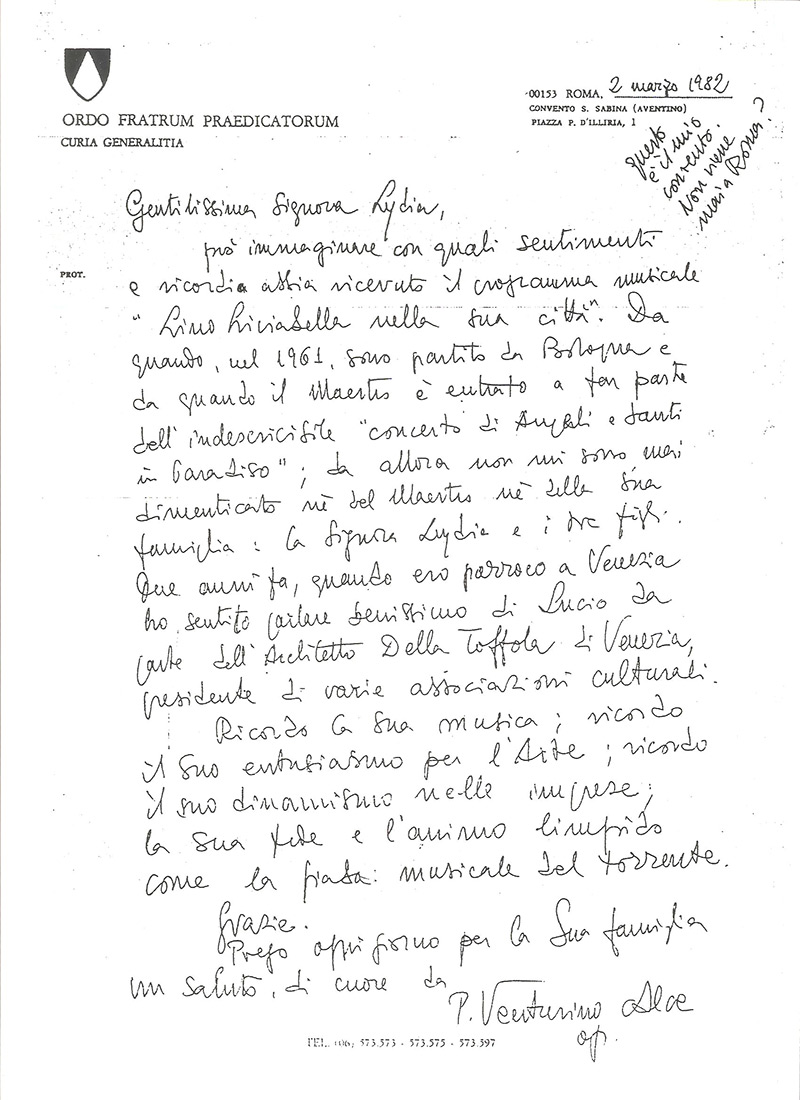 ORDO FRATRUM PRAEDICATORUM
CURIA GENERALITIA
00153 ROMA, 2 marzo 1982
CONVENTO S. SABINA (AVENTINO)
PIAZZA P. D'ILLIRIA, 1
questo
è il mio
convento.
Non viene
mai a Roma?
Gentilissima Signora Lydia,
può immaginare con quali sentimenti
PROT.
e ricordi abbia ricevuto il programma musicale
"Lino Liviabella nella sua città". Da
quando, nel 1961, sono partito da Bologna e
da quando il Maestro è entrato a far parte
dell'indescrivibile "concerto di Angeli e Santi
in Paradiso"; da allora non mi sono mai
dimenticato nè del Maestro nè della Sua
famiglia: la Signora Lydia e i tre figli.
Due anni fa, quando ero parroco a Venezia
ho sentito parlare benissimo di Lucio da
parte dell'Architetto Della Toffola di Venezia,
presidente di varie associazioni culturali.
Ricordo la Sua musica; ricordo
il Suo entusiasmo per l'Arte; ricordo
il suo dinamismo nelle imprese;
la Sua fede e l'animo limpido
come la musicale del torrente.
Grazie.
Prego ogni giorno per la Sua famiglia
un saluto, di cuore da
P. Venturino Alce
op.
TEL. (06) 573.573 - 573.575 - 573.597